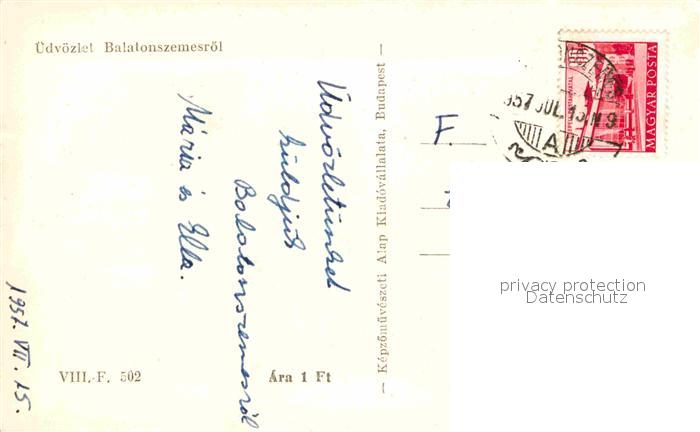 Üdvözlet Balatonszemesről
Üdvözletünket
küldjük
Balatonszemesről
Mária és Ella.
1957. VII. 15.
VIII.-F. 502
Ára 1 Ft
— Képzőművészeti Alap Kiadóvállalata, Budapest —
MAGYAR POSTA
957 JUL. 15. N 9
A
F.
privacy protection
Datenschutz